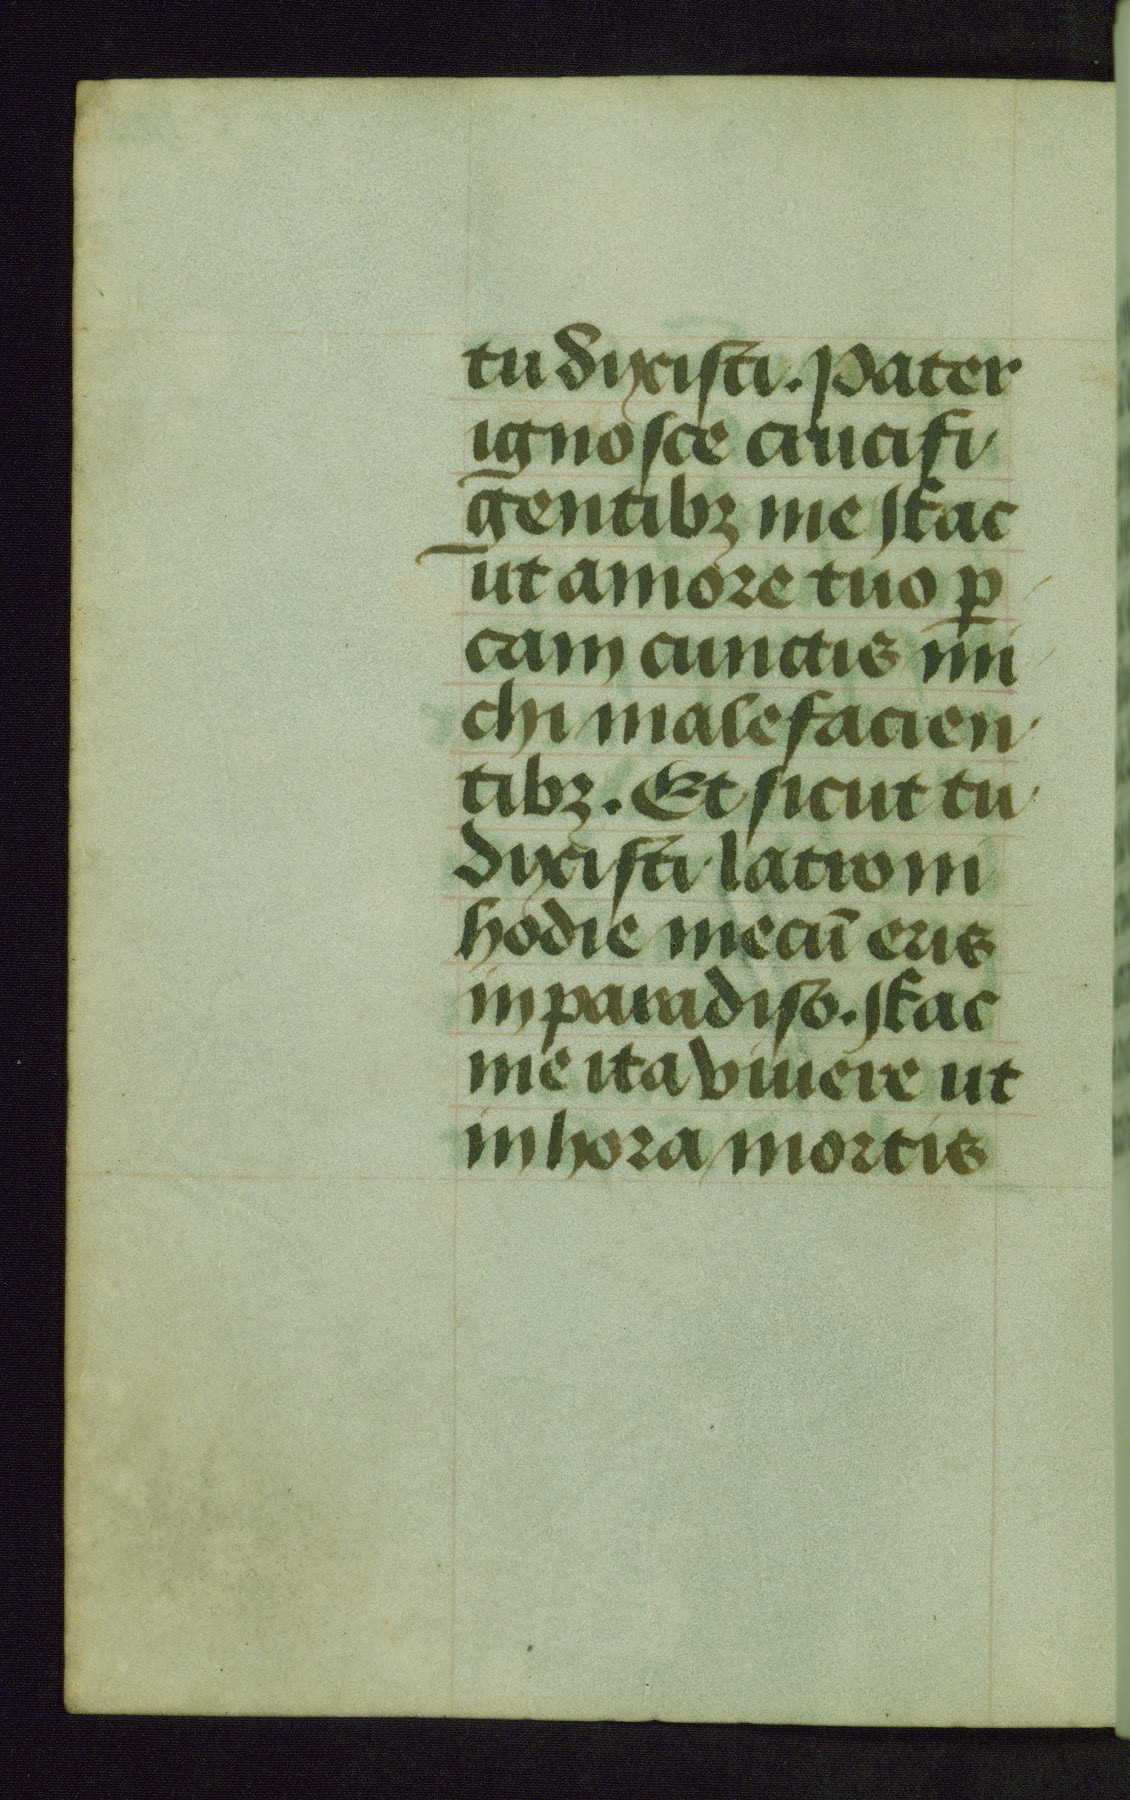 tu dixisti. Pater
ignosce crucifi
gentibꝫ me ffac
ut amore tuo ꝑ
cam cunctis mi
chi malefacien
tibꝫ. Et sicut tu
dixisti latroni
hodie mecū eris
in paradiso. ffac
me ita vivere ut
in hora mortis